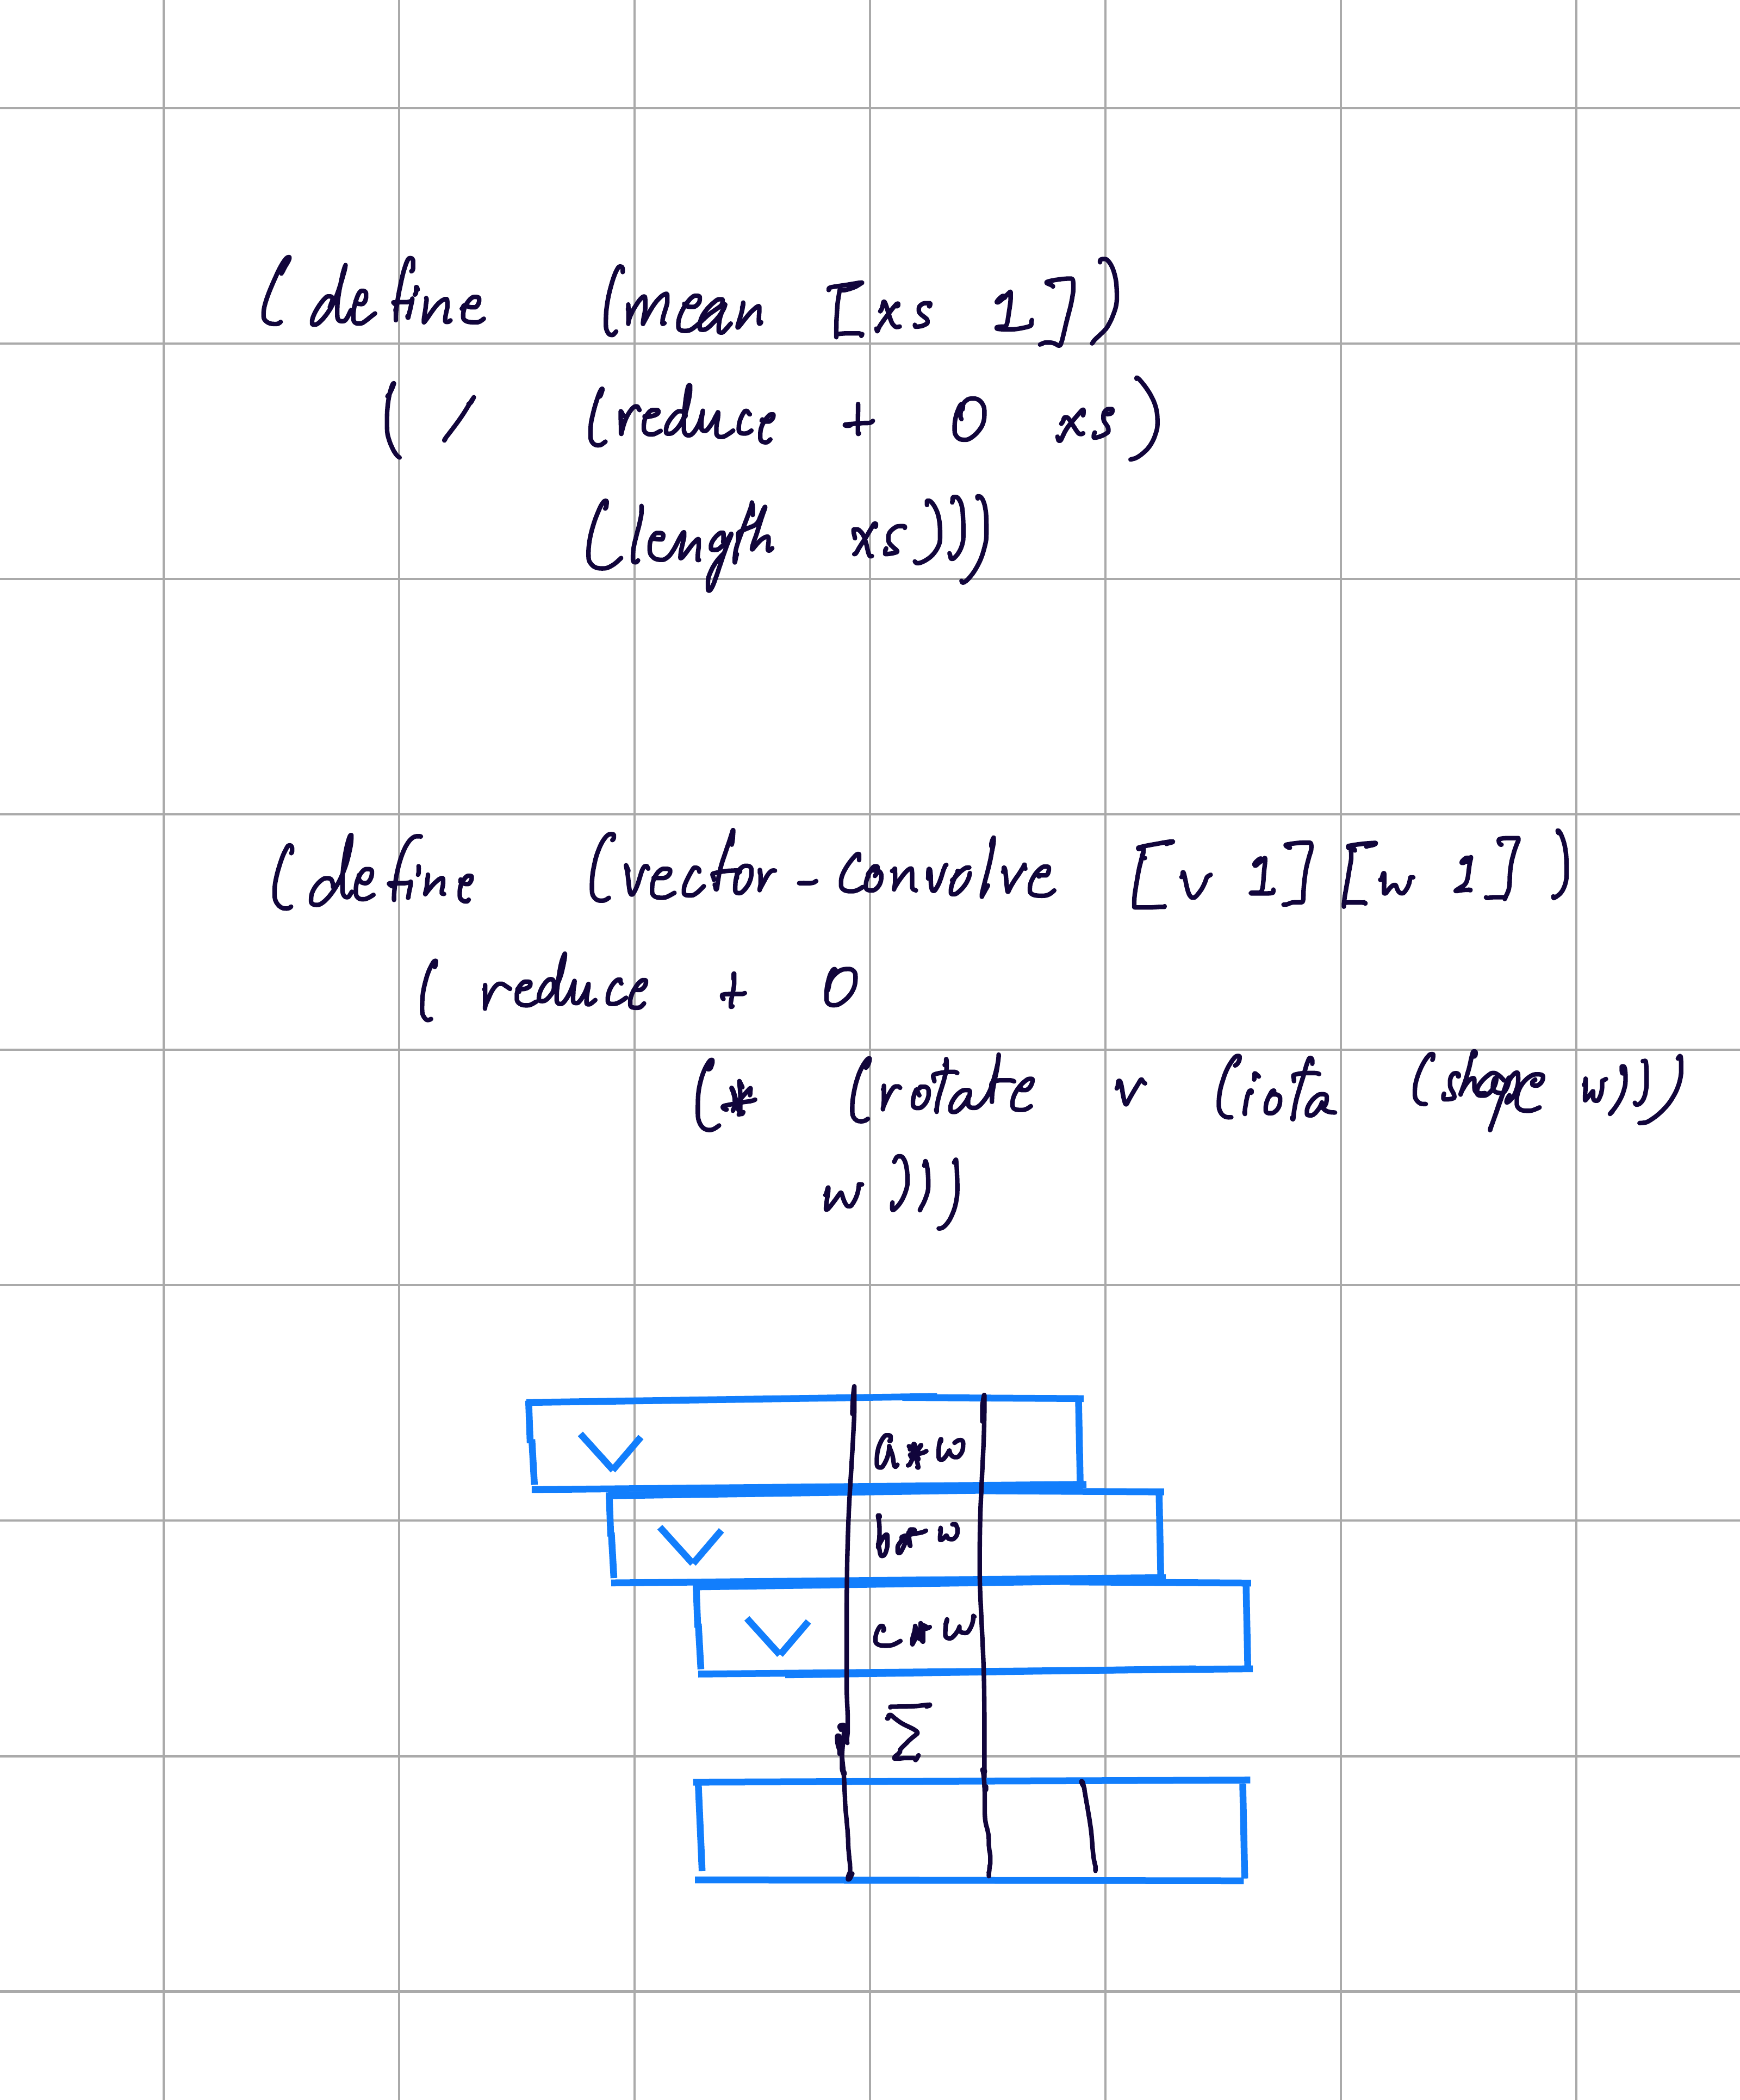 (define (mean [xs 1])
( / (reduce + 0 xs)
(length xs)))
(define (vector-convolve [v 1][w 1])
( reduce + 0
(* (rotate v (iota (shape w)))
w)))
a*w
b*w
c*w
Σ